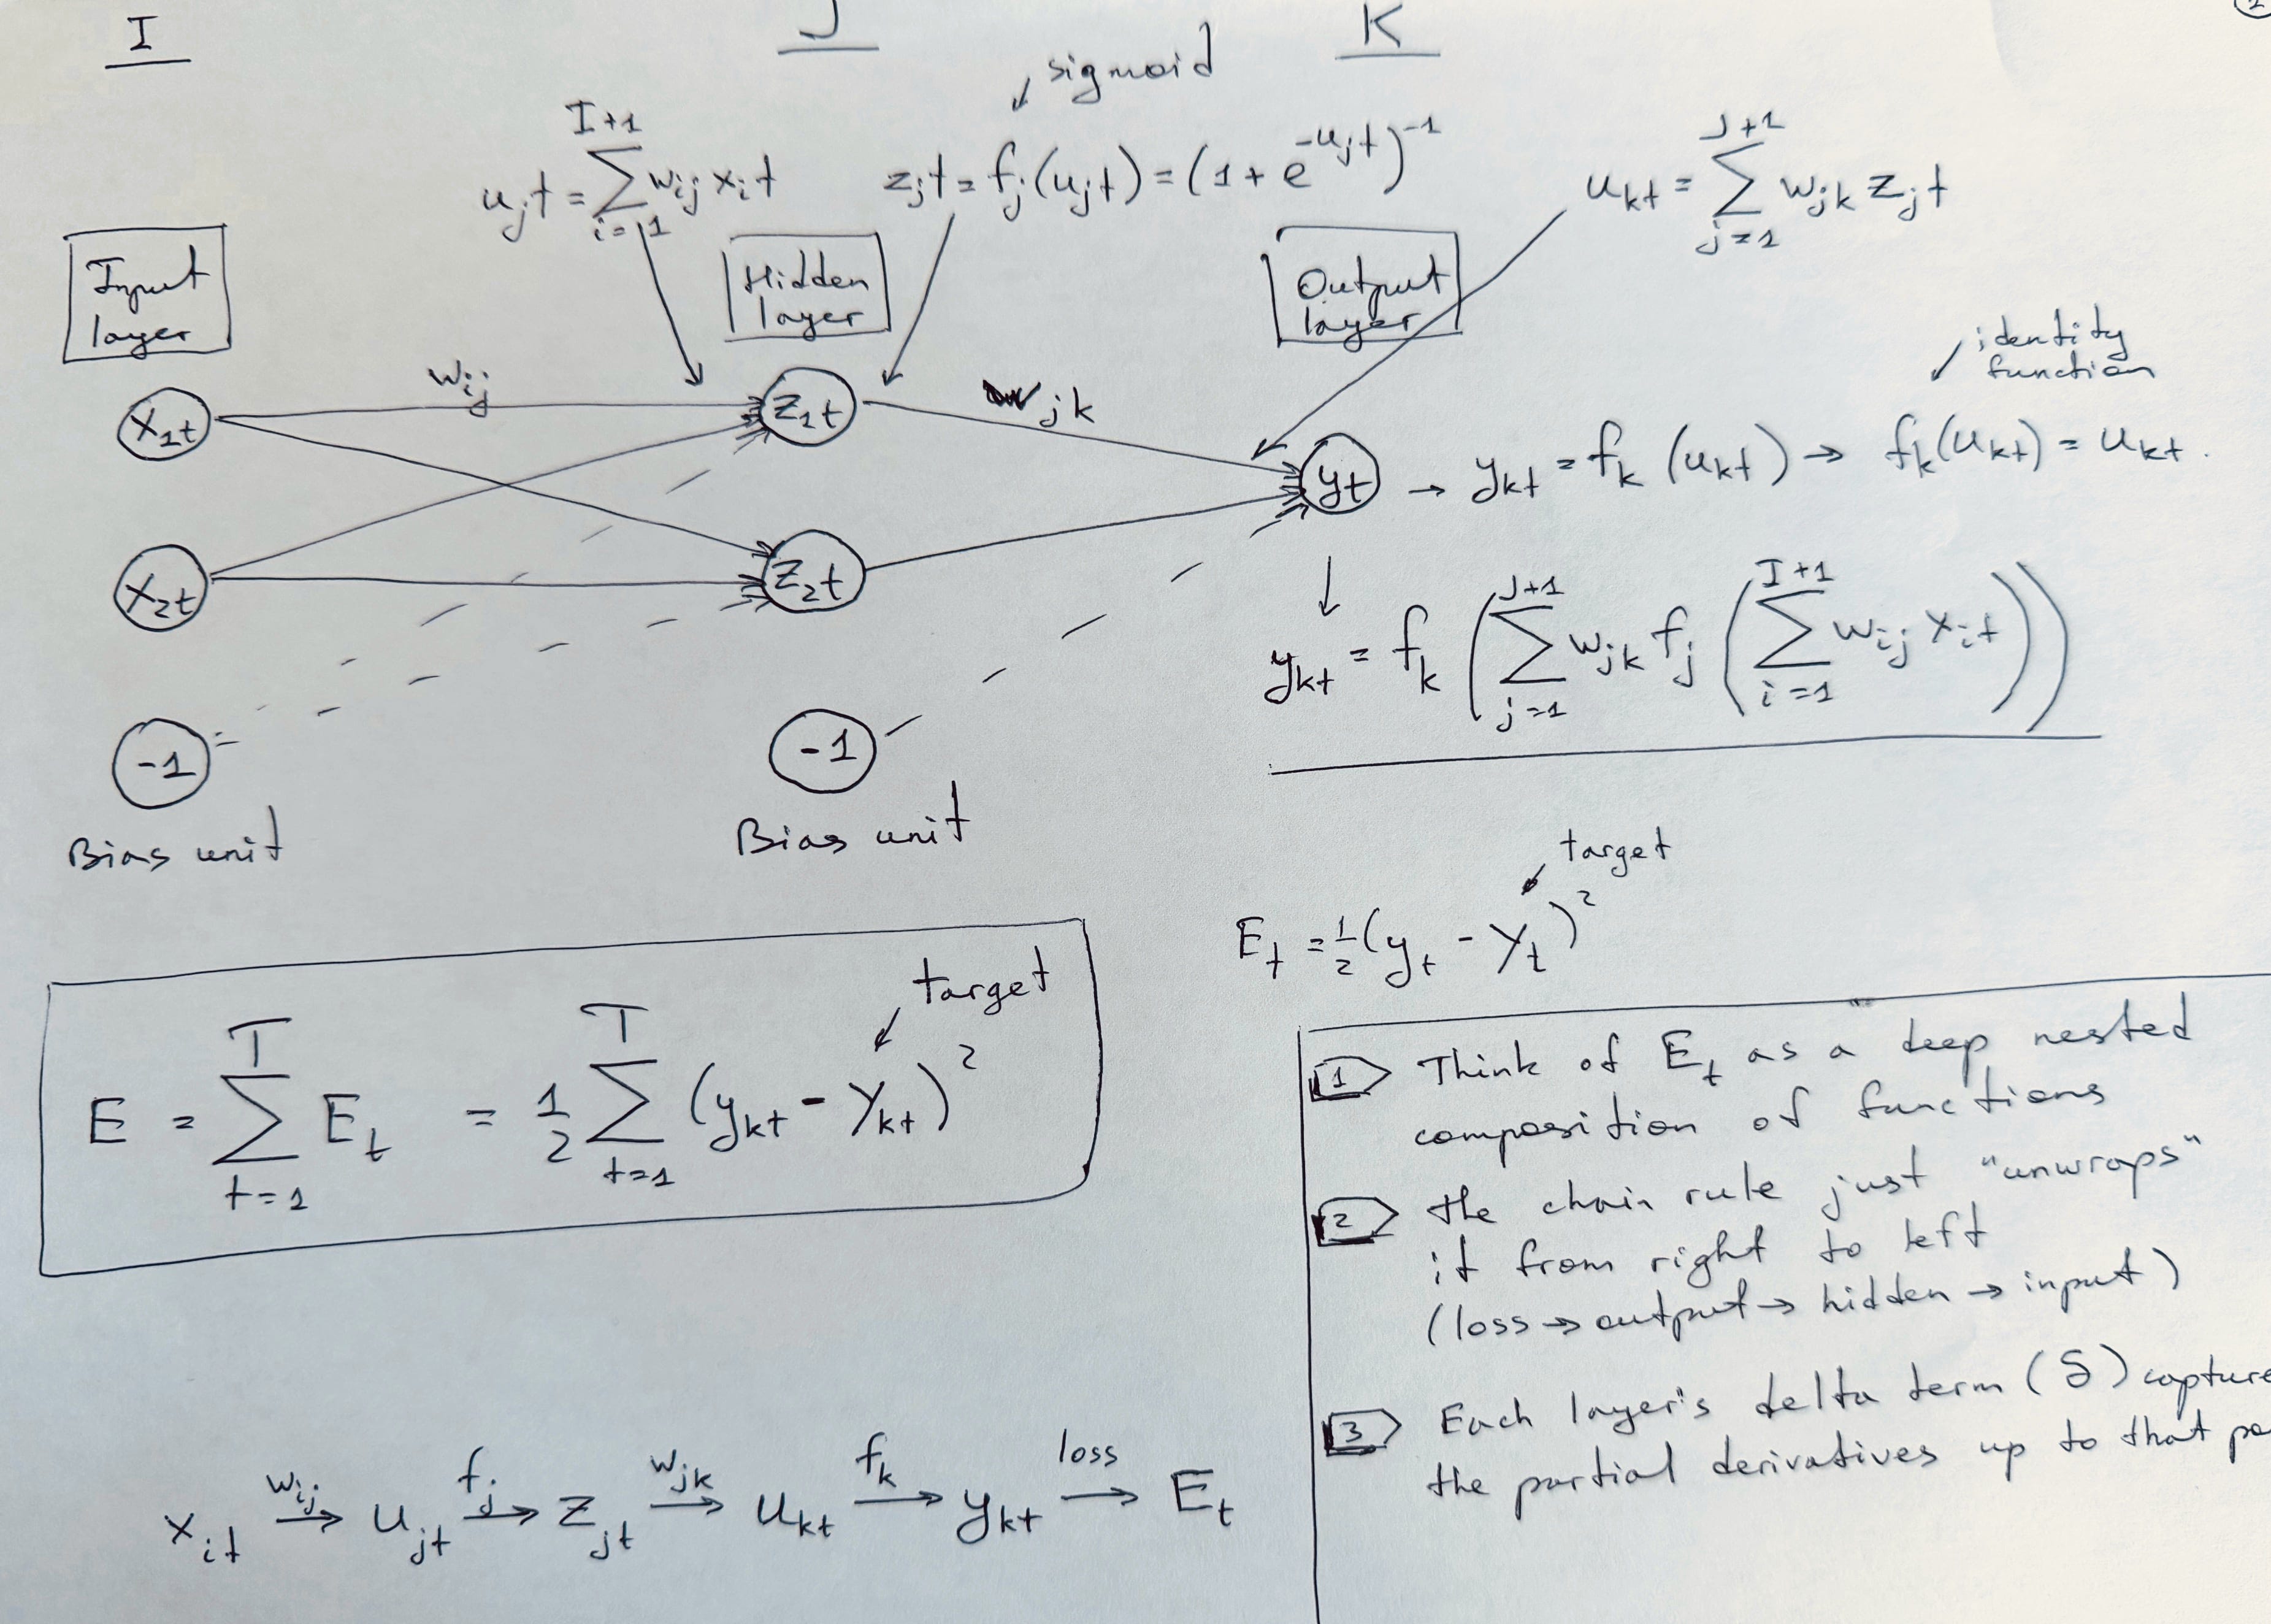 I J K
2
sigmoid
u_jt = Σ_{i=1}^{I+1} w_ij x_it
z_jt = f_j(u_jt) = (1 + e^{-u_jt})^{-1}
u_kt = Σ_{j=1}^{J+1} w_jk z_jt
Input
layer
Hidden
layer
Output
layer
identity
function
w_ij
w_jk
x_1t
z_1t
x_2t
z_2t
y_t → y_kt = f_k(u_kt) → f_k(u_kt) = u_kt.
y_kt = f_k(Σ_{j=1}^{J+1} w_jk f_j(Σ_{i=1}^{I+1} w_ij x_it))
-1
Bias unit
-1
Bias unit
target
E_t = 1/2 (y_t - Y_t)^2
target
E = Σ_{t=1}^{T} E_t = 1/2 Σ_{t=1}^{T} (y_kt - Y_kt)^2
1 Think of E_t as a deep nested
composition of functions
2 the chain rule just "unwraps"
it from right to left
(loss → output → hidden → input)
3 Each layer's delta term (δ) capture
the partial derivatives up to that
w_ij f_j w_jk f_k loss
x_it → u_jt → z_jt → u_kt → y_kt → E_t